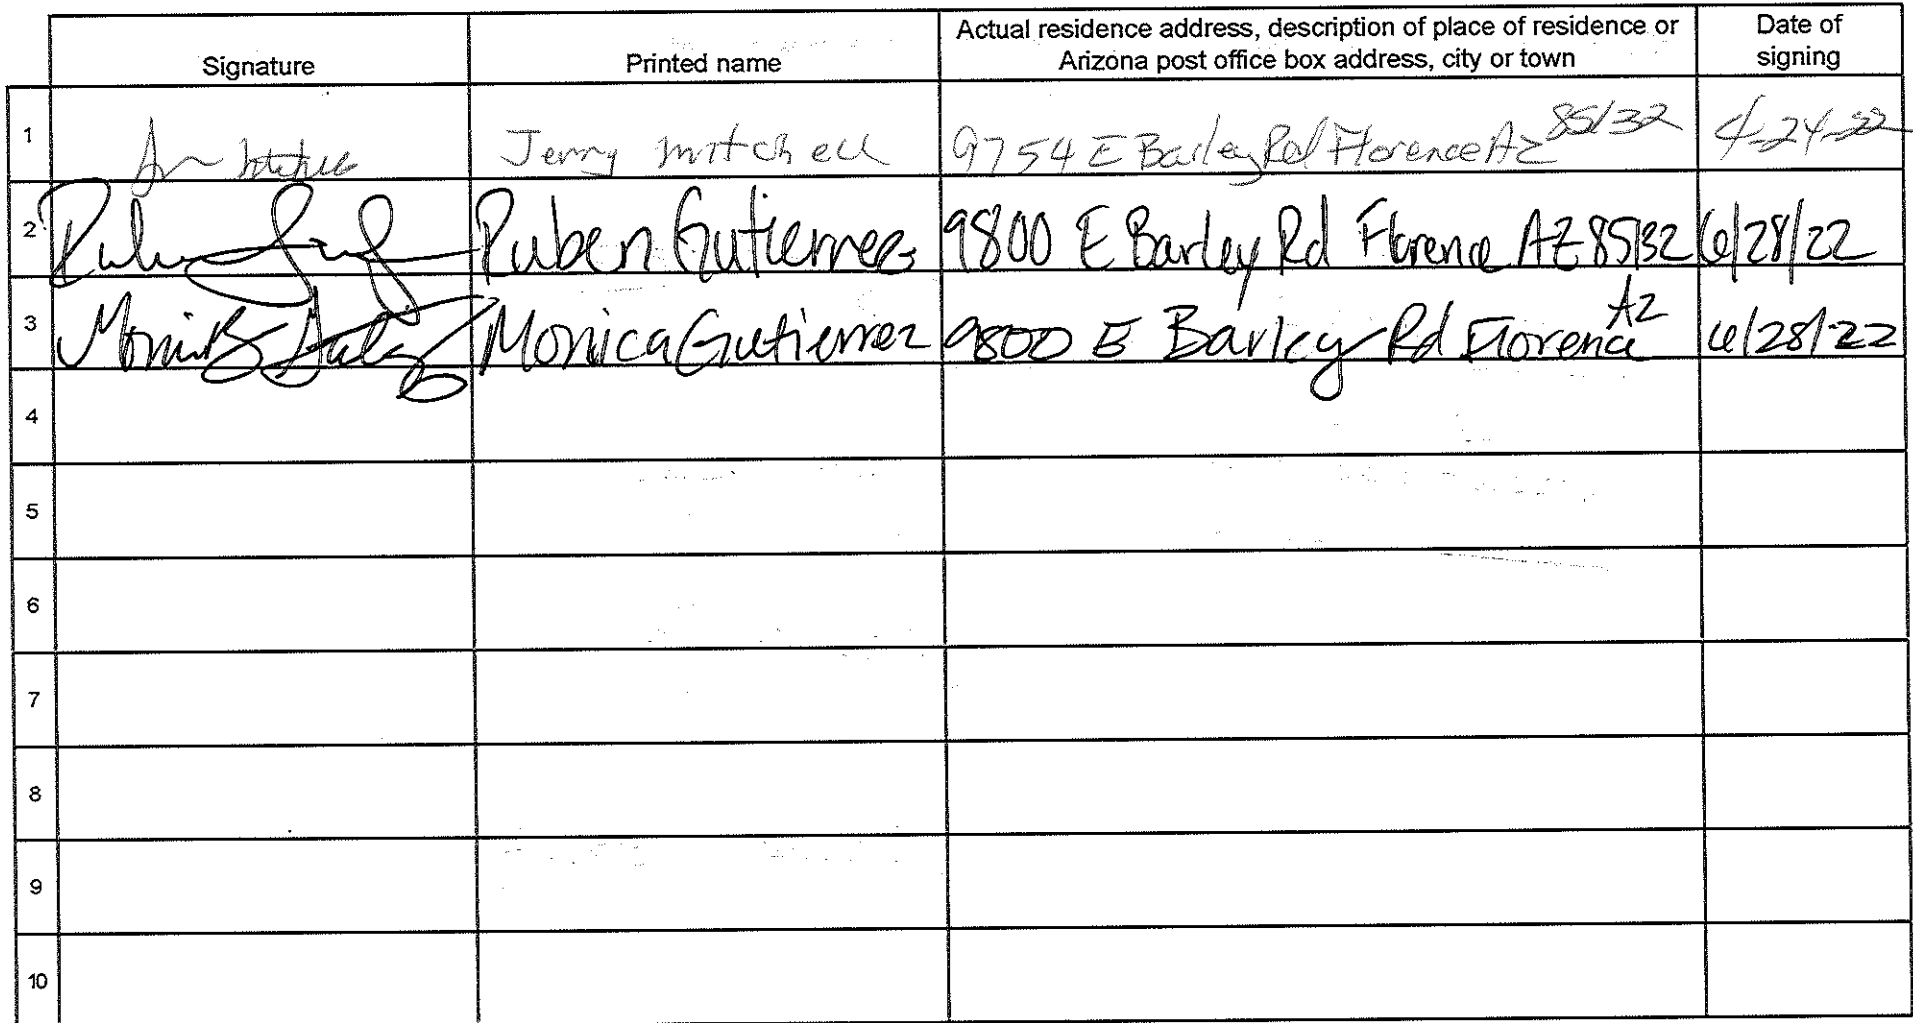 Signature
Printed name
Actual residence address, description of place of residence or
Arizona post office box address, city or town
Date of
signing
1 Jerry mitchell 9754 E Barley Rd Florence Az 85132 4-24-22
2 Ruben Gutierrez 9800 E Barley Rd Florence AZ 85132 6/28/22
3 Monica Gutierrez 9800 E Barley Rd Florence AZ 6/28/22
4
5
6
7
8
9
10